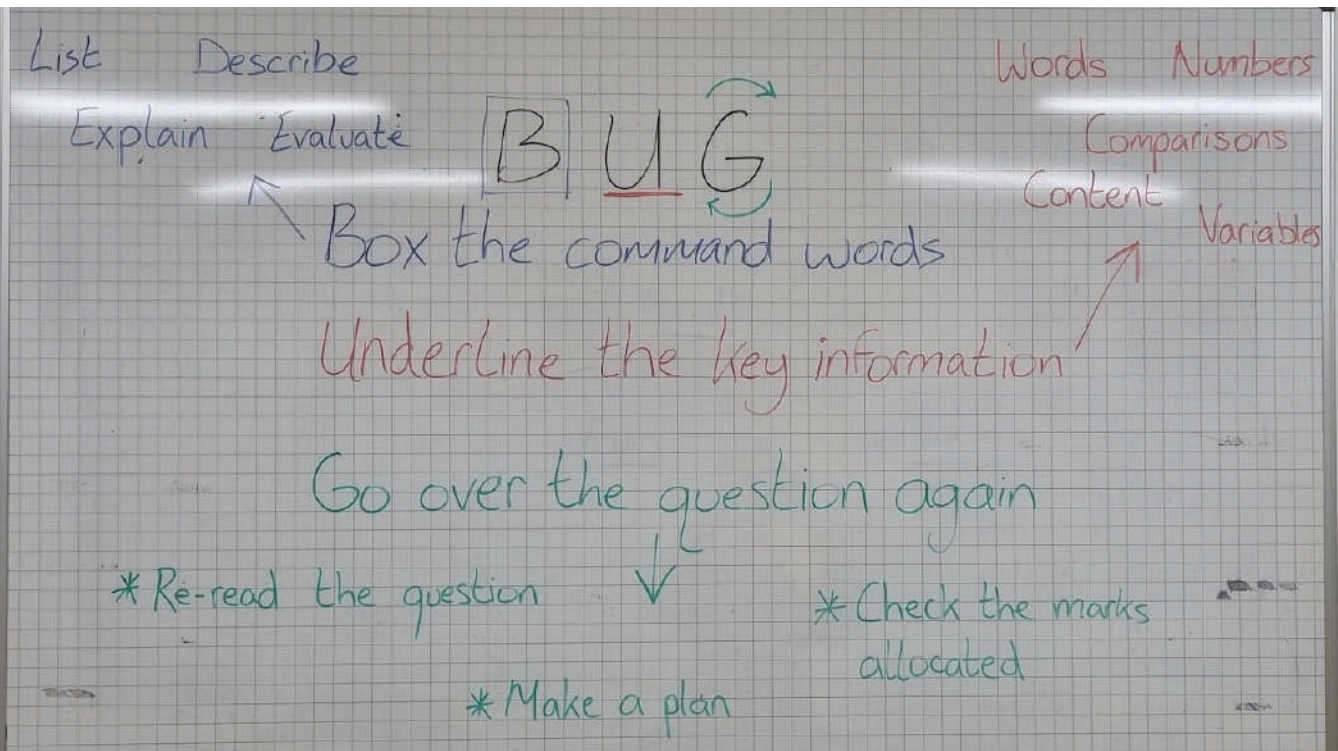 List Describe
Explain Evaluate
BUG
Words Numbers
Comparisons
Content
Variables
Box the command words
Underline the key information
Go over the question again
* Re-read the question
* Check the marks
allocated
* Make a plan